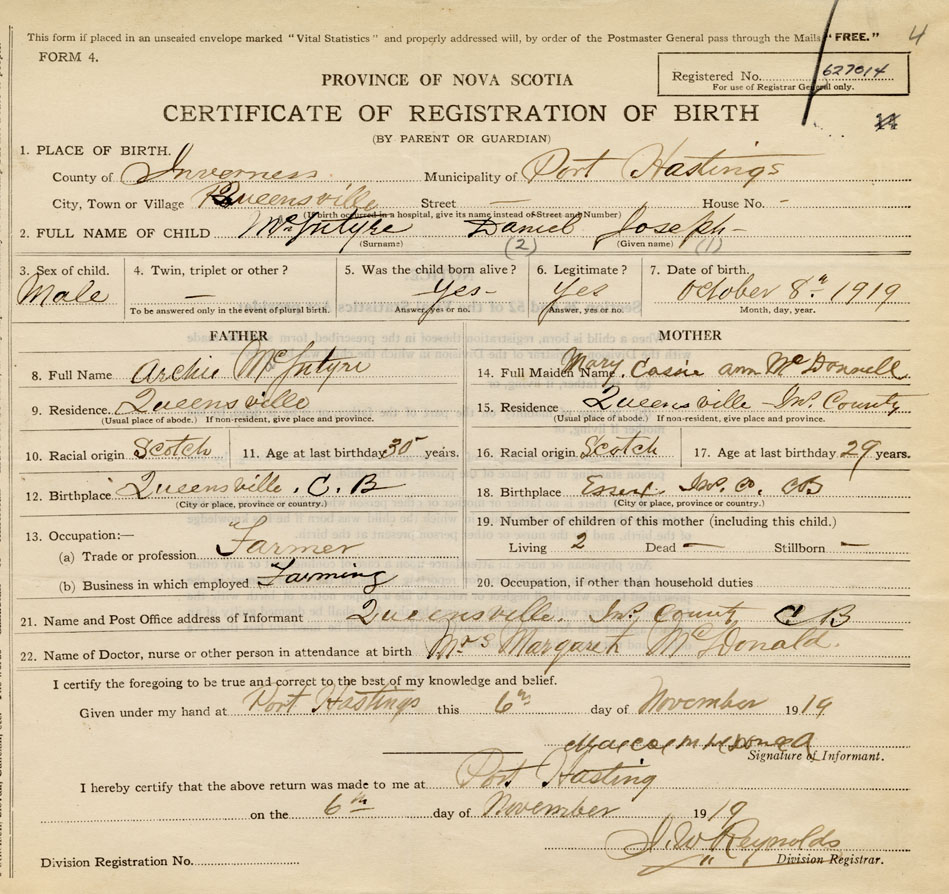 This form if placed in an unsealed envelope marked "Vital Statistics" and properly addressed will, by order of the Postmaster General pass through the Mails "FREE." 4
FORM 4.
PROVINCE OF NOVA SCOTIA
Registered No. 627014
For use of Registrar General only.
CERTIFICATE OF REGISTRATION OF BIRTH
(BY PARENT OR GUARDIAN)
1. PLACE OF BIRTH.
County of Inverness Municipality of Port Hastings
City, Town or Village Queensville Street — House No. -
(If birth occurred in a hospital, give its name instead of Street and Number)
2. FULL NAME OF CHILD McIntyre Daniel Joseph -
(Surname) (2) (Given name) (1)
3. Sex of child. 4. Twin, triplet or other? 5. Was the child born alive? 6. Legitimate? 7. Date of birth.
Male — Yes- Yes October 8th 1919
To be answered only in the event of plural birth. Answer, yes or no. Answer, yes or no. Month, day, year.
FATHER MOTHER
8. Full Name Archie McIntyre 14. Full Maiden Name Mary Cassie ann McDonnell
9. Residence Queensville 15. Residence Queensville Inv. County
(Usual place of abode.) If non-resident, give place and province. (Usual place of abode.) If non-resident, give place and province.
10. Racial origin Scotch 11. Age at last birthday 30 years. 16. Racial origin Scotch 17. Age at last birthday 29 years.
12. Birthplace Queensville. C. B 18. Birthplace Essex Inv. Co. CB
(City or place, province or country.) (City or place, province or country.)
13. Occupation:— 19. Number of children of this mother (including this child.)
(a) Trade or profession Farmer Living 2 Dead — Stillborn —
(b) Business in which employed Farming 20. Occupation, if other than household duties
21. Name and Post Office address of Informant Queensville. Inv. County C B
22. Name of Doctor, nurse or other person in attendance at birth Mrs Margaret McDonald.
I certify the foregoing to be true and correct to the best of my knowledge and belief.
Given under my hand at Port Hastings this 6th day of November 1919
Signature of Informant.
I hereby certify that the above return was made to me at Port Hasting
on the 6th day of November 1919
J. W Reynolds
Division Registration No. Division Registrar.